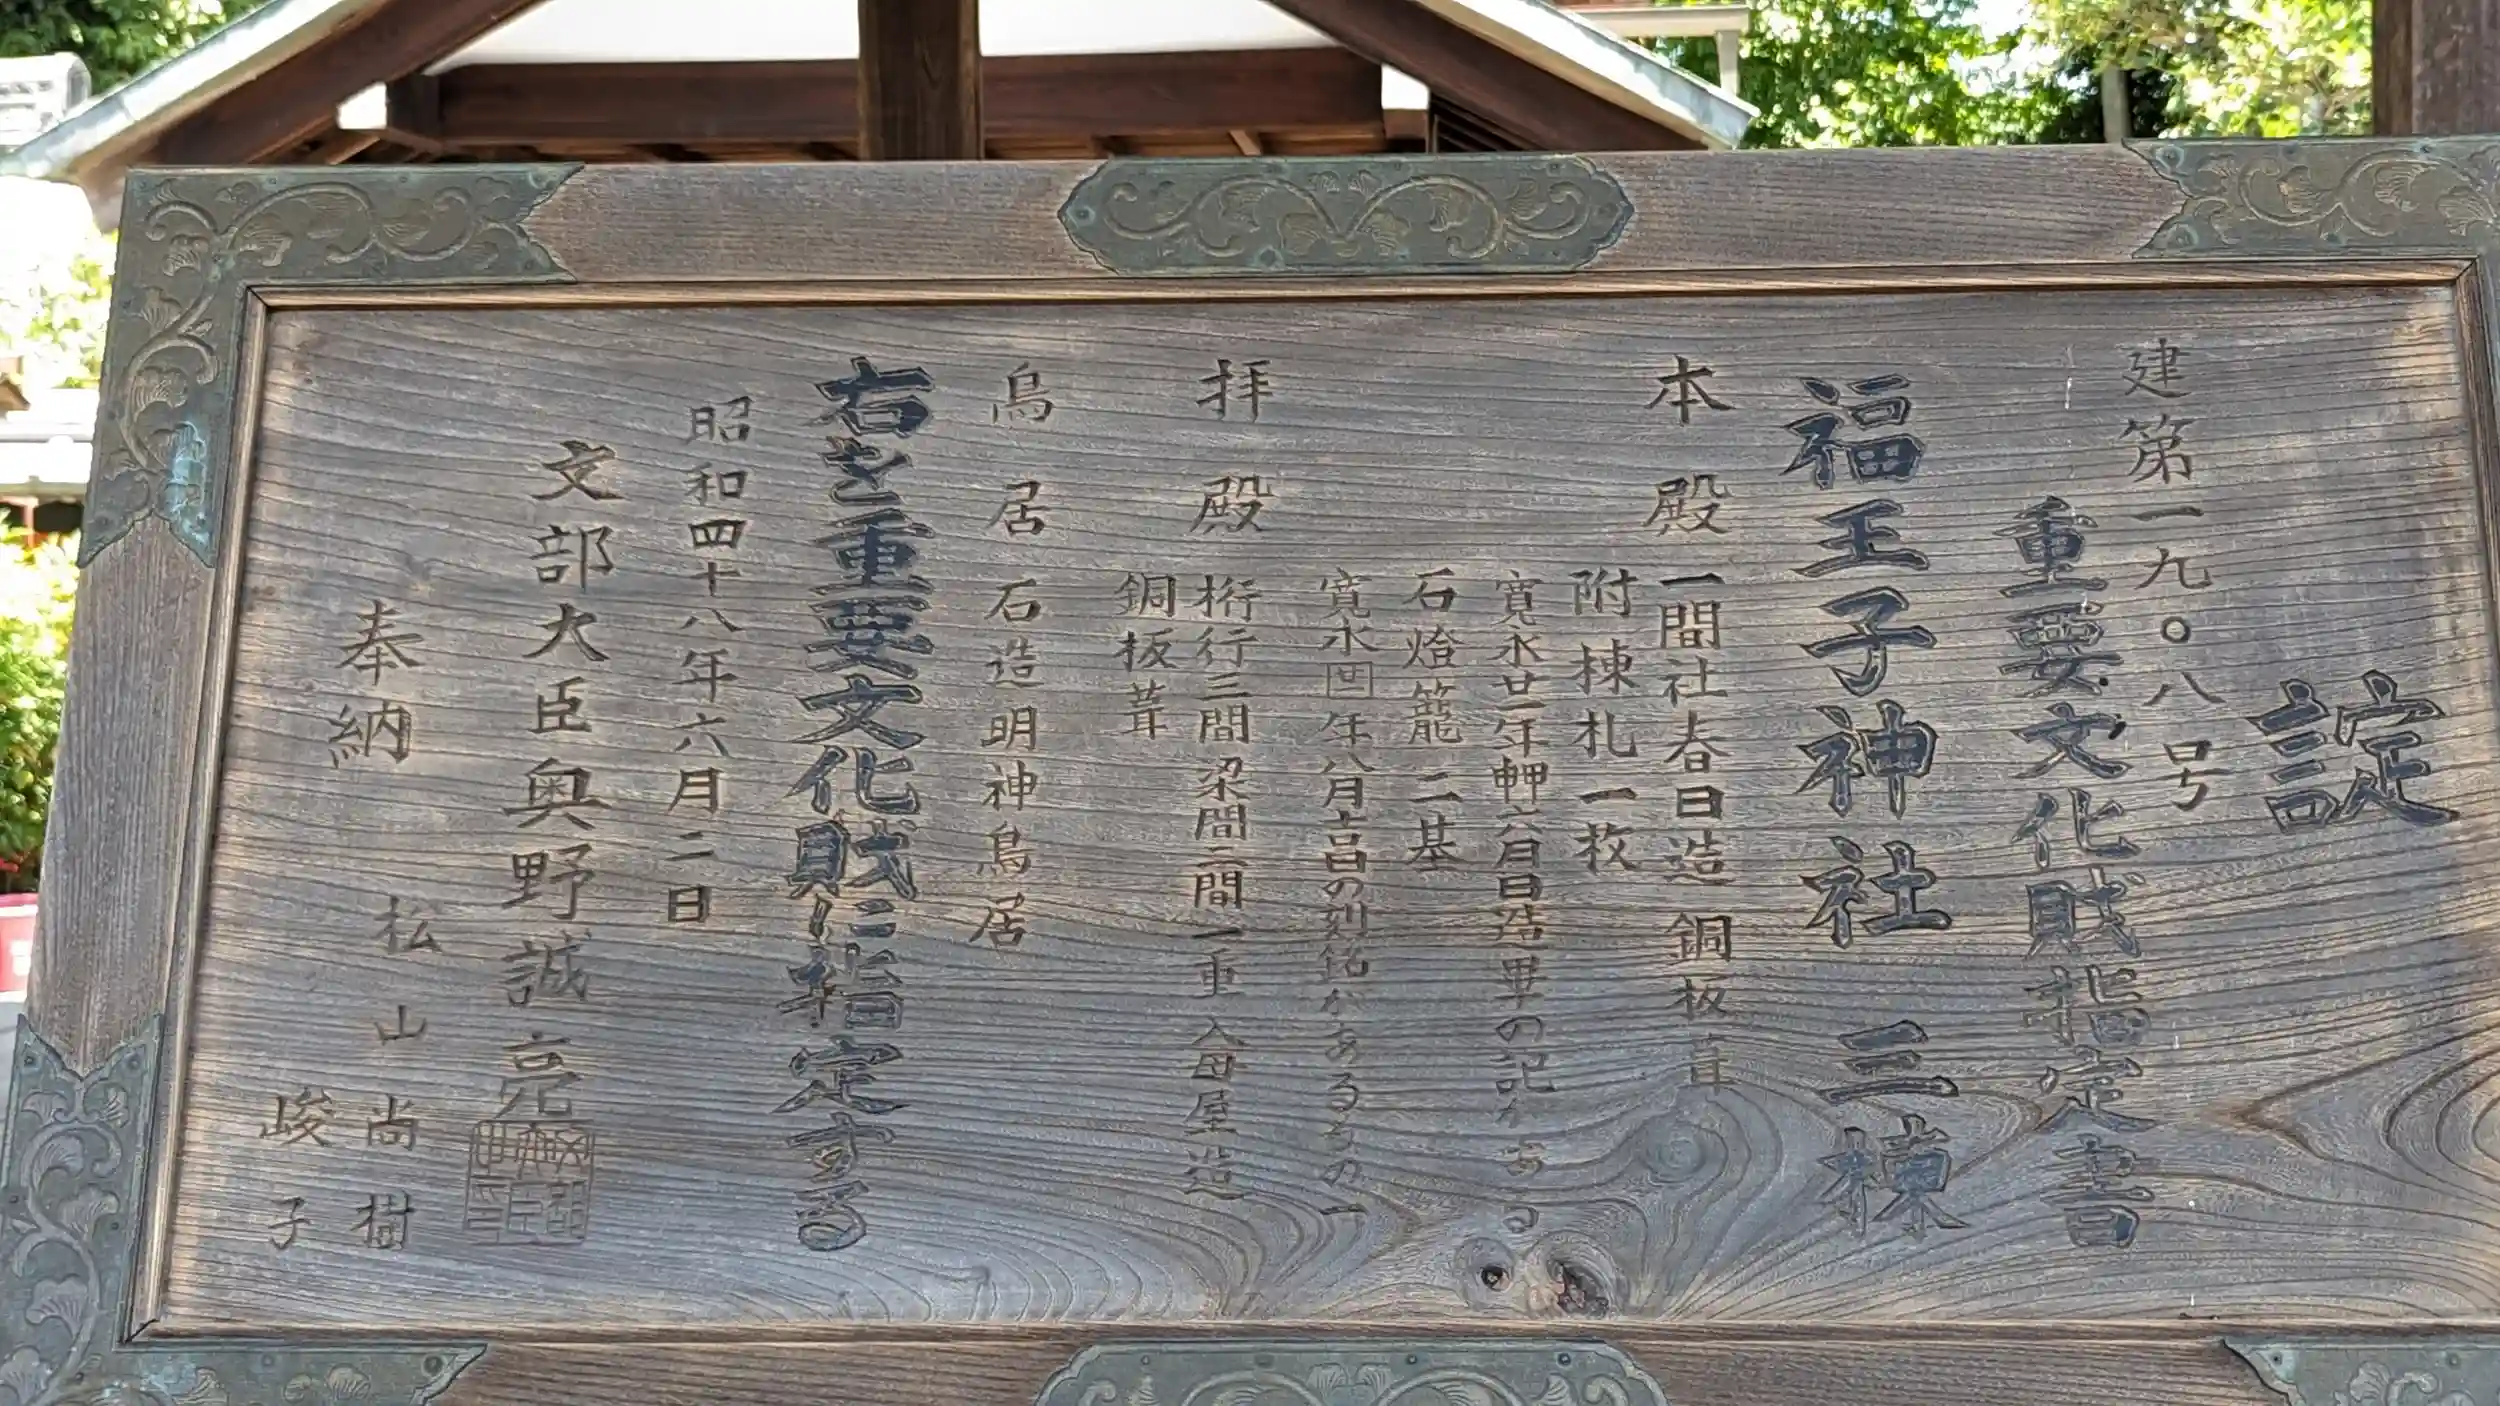 諚
建第一九〇八号
重要文化財指定書
福王子神社 三棟
本殿 一間社春日造 銅板葺
附棟札一枚
寛永廿一年 六月日造畢の記がある
石燈籠 二基
寛永 年八月吉日の刻銘があるもの一
拝殿 桁行三間 梁間二間 一重 入母屋造
銅板葺
鳥居 石造明神鳥居
右を重要文化財に指定する
昭和四十八年六月二日
文部大臣 奥野誠亮
奉納 松山尚樹
峻子